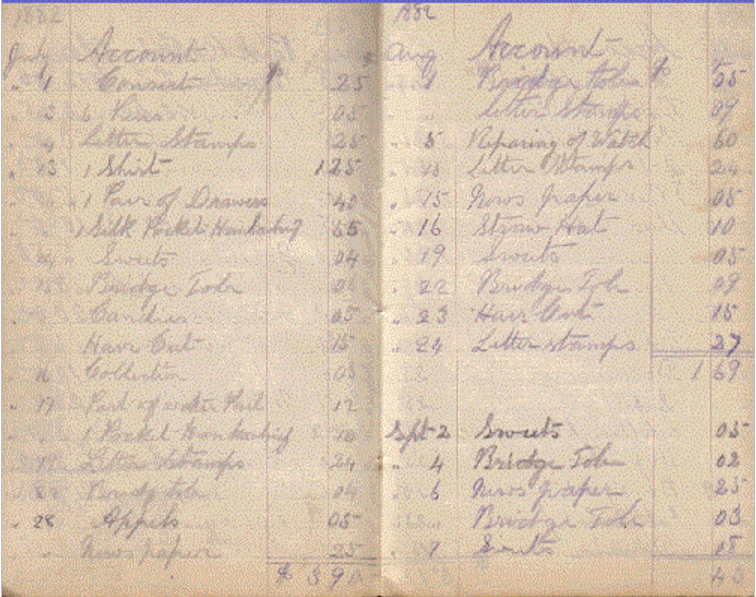 1882
July Account $
" 1 Consert $ 25
" 3 6 Pies 05
" 4 Letter Stamps 25
" 13 1 Shirt 1 25
1 Pair of Drawers 40
1 Silk Pocket Hankachief 55
Sweets 04
Bridge Tole 06
Candies 05
Hair Cut 15
" 16 Collection 03
" 17 Part of water 12
" 1 Pocket Hankachief 10
Letter Stamps 24
Bridg tole 04
" 28 Appels 05
" " News paper 25
$ 3 90
1882
Aug Account
" 1 Bridge tole $ 05
" " Letter Stamps 09
" 5 Reparing of Watch 60
Letter Stamps 24
" 15 News paper 05
" 16 Straw Hat 10
" 19 Sweets 05
" 22 Bridge Tole 09
" 23 Hair Cut 15
" 24 Letter stamps 27
1 69
Sept 2 Sweets 05
" 4 Bridge Tole 02
" 6 News paper 25
Bridge Tole 03
" 7 Sweets